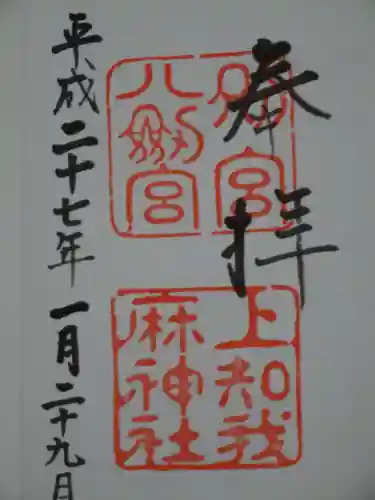 奉拝
別宮
八劔宮
上知我
麻神社
平成二十七年一月二十九日